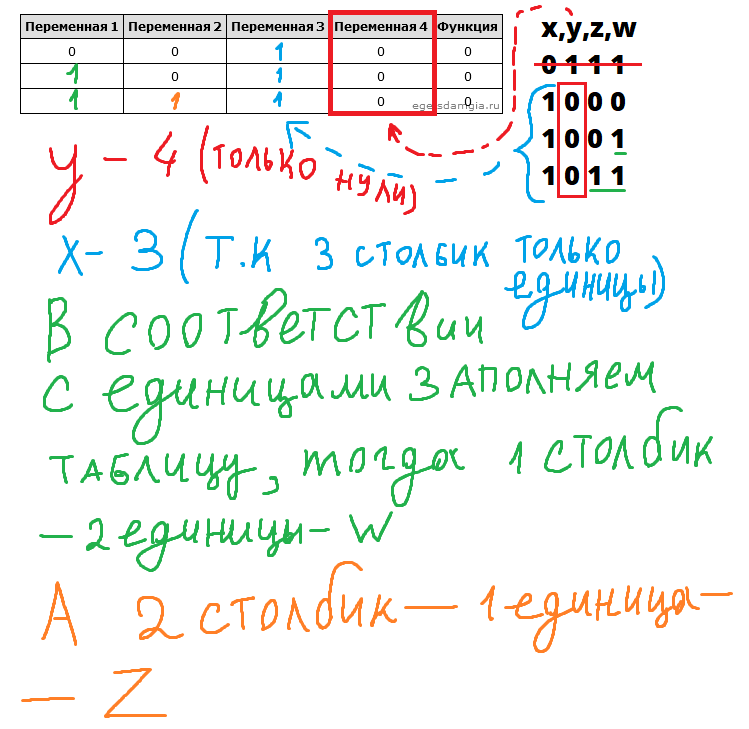 Переменная 1 Переменная 2 Переменная 3 Переменная 4 Функция
0 0 1 0 0
1 0 1 0 0
1 1 1 0 0
ege.sdamgia.ru
x,y,z,w
0 1 1 1
1 0 0 0
1 0 0 1
1 0 1 1
y - 4 (только нули)
x - 3 (т.к 3 столбик только
единицы)
В соответствии
с единицами заполняем
таблицу, тогда 1 столбик
— 2 единицы - w
А 2 столбик — 1 единица —
— Z